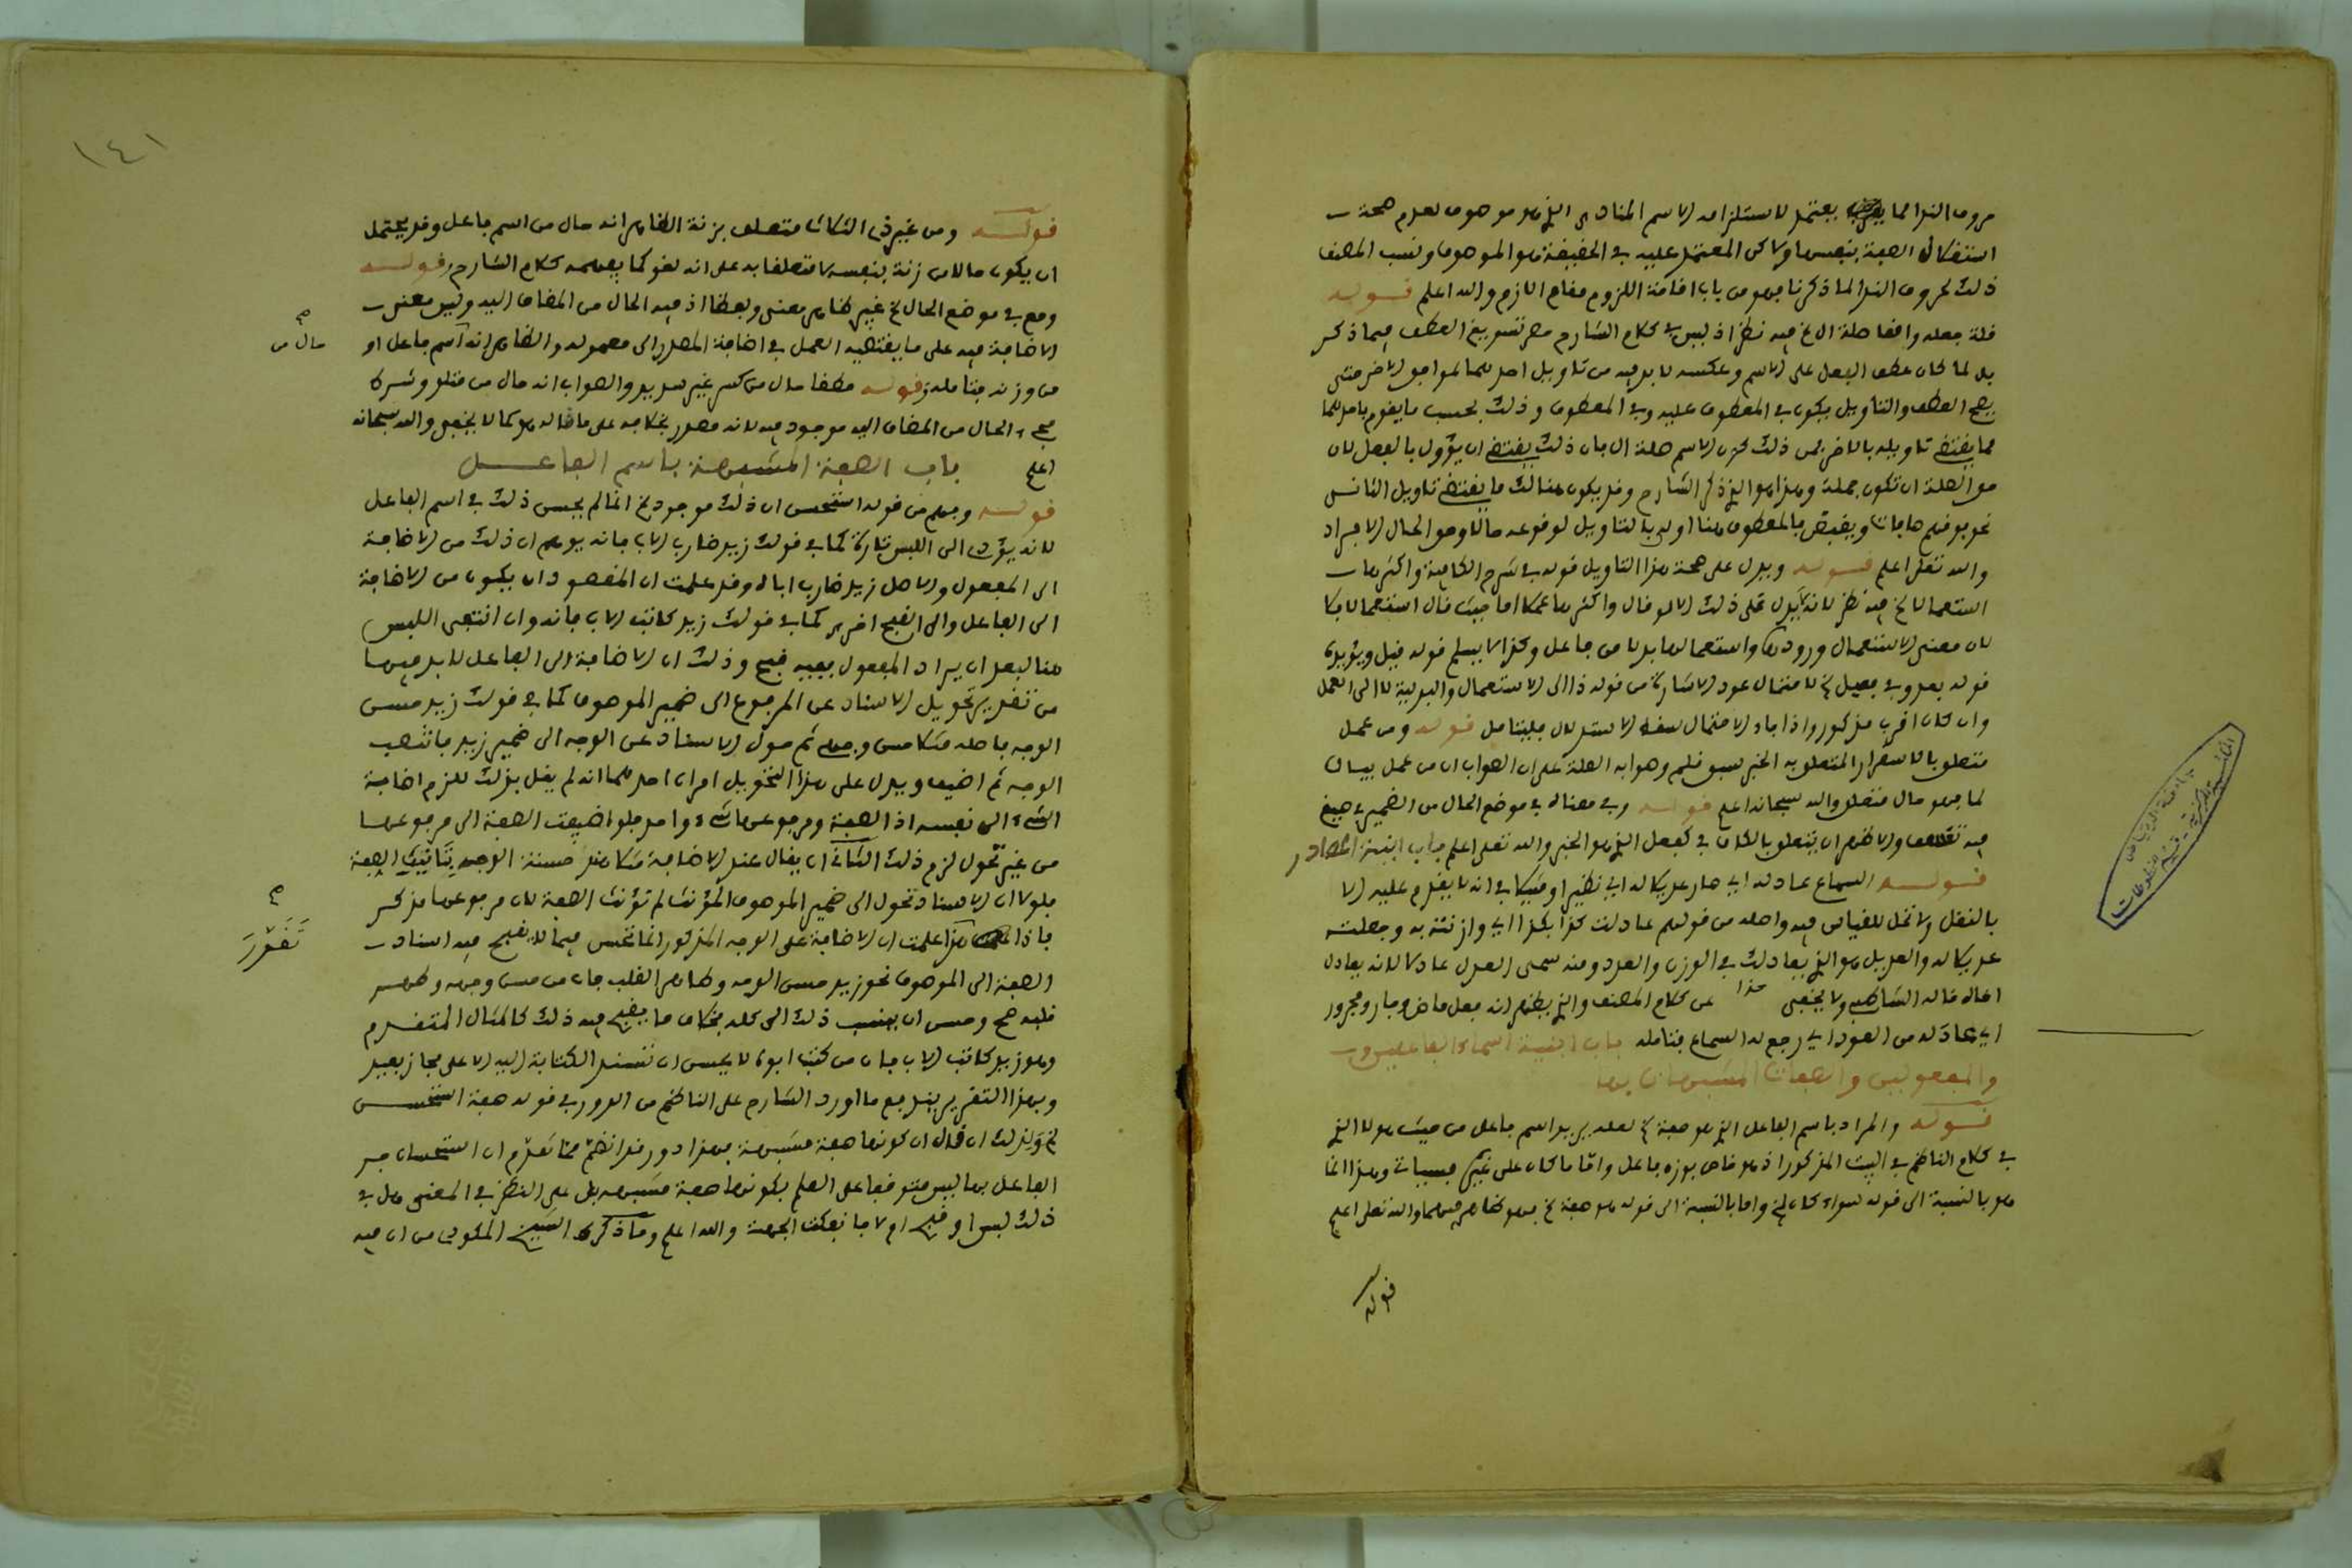 حروف الندا مما يعتمد لاستلزامه الاسم المنادى الذي هو موصوف لعدم صحة
استقلال الصفة بنفسها ولاكن المعتمد عليه في الحقيقة هو الموصوف ونسب المصنف
ذلك لحروف الندا لما ذكرنا فهو من باب اقامة اللزوم مقام اللازم والله اعلم قوله
فلة جعله واقعا صلة ال فيه نظر اذ ليس في كلام الشارح تسويغ العطف فيما ذكر
بل لما كان عطف الفعل على الاسم وعكسه لا بد فيه من تاويل احدهما لموافق الاخر حتى
يصح العطف والتاويل يكون في المعطوف عليه وفي المعطوف وذلك بحسب ما يقوم باحدهما
مما يقتضي تاويله بالاخر فمن ذلك كون الاسم صلة ال فان ذلك يقتضي ان يؤول بالفعل لان
حق الصلة ان تكون جملة وهذا هو الذي ذكر الشارح وقد يكون هنالك ما يقتضي تاويل الثاني
نحو فوقهم صافات ويقبضن فالمعطوف هنا اولى بالتاويل لوقوعه حالا وهو الحال الافراد
والله تعلى اعلم قوله ويدل على صحة هذا التاويل قوله في شرح الكافية واكثرها
استعمالا فيه نظر لانه لا يدل على ذلك الا لو قال واكثرها عملا اما حيث قال استعمالا فلا
لان معنى الاستعمال وروده واستعمالها بدلا من فاعل وكذا لا يسلم قوله قبل ويؤيده
قوله بعد وفي فعيل لاحتمال عود الاشارة من قوله ذا الى الاستعمال والبدلية لا الى العمل
وان كان اقرب مذكور واذا جاء الاحتمال سقط الاستدلال فليتامل قوله ومن عمل
متعلق بالاستقرار المتعلق به الخبر سبق قلم وصوابه الصلة على ان الصواب ان من عمل بيان
لما فهو حال متعلق والله سبحانه اعلم قوله وفي معناه في موضع الحال من الضمير في صيغ
فيه تعسف والاظهر ان يتعلق بالكاف في كفعل الذي هو الخبر والله تعلى اعلم باب ابنية المصادر
قوله السماع عادله اي صار عديلا له اي نظيرا ومثيلا في انه لا يقدم عليه الا
بالنقل ولا دخل للقياس فيه واصله من قولهم عادلت كذا بكذا اي وازنته به وجعلته
عديلا له والعديل هو الذي يعادلك في الوزن والعدد ومنه سمي العدل عادلا لانه يعادل
اخاه قاله الشاطبي ولا يخفى هذا عن كلام المصنف والذي يظهر انه فعل ماض وجار ومجرور
اي عاد له من العود اي رجع له السماع فتامله باب ابنية اسماء الفاعلين
والمفعولين والصفات المشبهات بها
قوله والمراد باسم الفاعل الذي هو صفة لعله يريد اسم فاعل من حيث هو لا الذي
في كلام الناظم في البيت المذكور اذ هو خاص بوزن فاعل واما ما كان على غيره فسيات وهذا انما
هو بالنسبة الى قوله سواء كان واما بالنسبة الى قوله هو صفة فهو ظاهر فيهما والله تعلى اعلم
قوله
١٤١
قوله ومن غير ذي الثلاث متعلق بزنة الظاهر انه حال من اسم فاعل وقد يحتمل
ان يكون حالا من زنة بنفسه لا متعلقا به على انه لغو كما يفهمه كلام الشارح قوله
وقع في موضع الحال غير ظاهر معنى ولفظا اذ فيه الحال من المضاف اليه وليس معنى
الاضافة فيه على ما يقتضيه العمل في اضافة المصدر الى معموله والظاهر انه اسم فاعل او
حال من
من وزنه فتامله قوله مطلقا حال من كسر غير سديد والصواب انه حال من متلو وشرط
مجيء الحال من المضاف اليه موجود فيه لانه مصدر بخلافه على ما قاله هو كما لا يخفى والله سبحانه
اعلم باب الصفة المشبهة باسم الفاعل
قوله وفهم من قوله استحسن ان ذلك موجود انما لم يحسن ذلك في اسم الفاعل
لانه يؤدي الى اللبس تارة كما في قولك زيد ضارب الاب فانه يوهم ان ذلك من الاضافة
الى المفعول والاصل زيد ضارب اباه وقد علمت ان المقصود ان يكون من الاضافة
الى الفاعل والى القبح اخرى كما في قولك زيد كاتب الاب فانه وان انتفى اللبس
هنا لبعد ان يراد المفعول ففيه قبح وذلك ان الاضافة الى الفاعل لا بد فيها
من تقدير تحويل الاسناد عن المرفوع الى ضمير الموصوف كما في قولك زيد حسن
الوجه فاصله مثلا حسن وجهه ثم حول الاسناد عن الوجه الى ضمير زيد فانتصب
الوجه ثم اضيف ويدل على هذا التحويل امران احدهما انه لم يقل بذلك للزم اضافة
الشيء الى نفسه اذ الصفة ومرفوعها شيء واحد فلو اضيفت الصفة الى مرفوعها
من غير تحول لزم ذلك الثاني ان يقال عند الاضافة مثلا هند حسنة الوجه بتانيث الصفة
فلولا ان الاسناد تحول الى ضمير الموصوف المؤنث لم تؤنث الصفة لان مرفوعها مذكر
تقرر
فاذا هذا علمت ان الاضافة على الوجه المذكور انما تحسن فيما لا يقبح فيه اسناد
الصفة الى الموصوف نحو زيد حسن الوجه وطاهر القلب فان من حسن وجهه وطهر
قلبه صح وحسن ان ينسب ذلك الى كله بخلاف ما يقبح فيه ذلك كالمثال المتقدم
وهو زيد كاتب الاب فان من كتب ابوه لا يحسن ان تسند الكتابة اليه الا على مجاز بعيد
وبهذا التقرير يندفع ما اورد الشارح على الناظم من الدور في قوله صفة استحسن
ولذلك ان قال ان كونها صفة مشبهة فهذا دور قد اتضح مما تقدم ان استحسان جر
الفاعل بها ليس متوقفا على العلم بكونها صفة مشبهة بل على النظر في المعنى هل في
ذلك لبس او قبح او لا فانفكت الجهة والله اعلم وما ذكره الشيخ المكودي من ان فيه